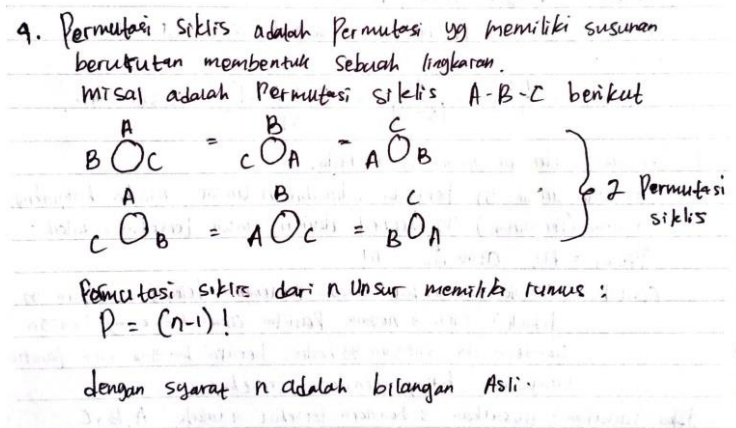 4. Permutasi siklis adalah Permutasi yg memiliki susunan
berurutan membentuk sebuah lingkaran.
misal adalah Permutasi siklis A-B-C berikut
A B C
B C = C A = A B
A B C
C B = A C = B A
} 2 Permutasi
siklis
Permutasi siklis dari n unsur memiliki rumus :
P = (n-1)!
dengan syarat n adalah bilangan Asli.